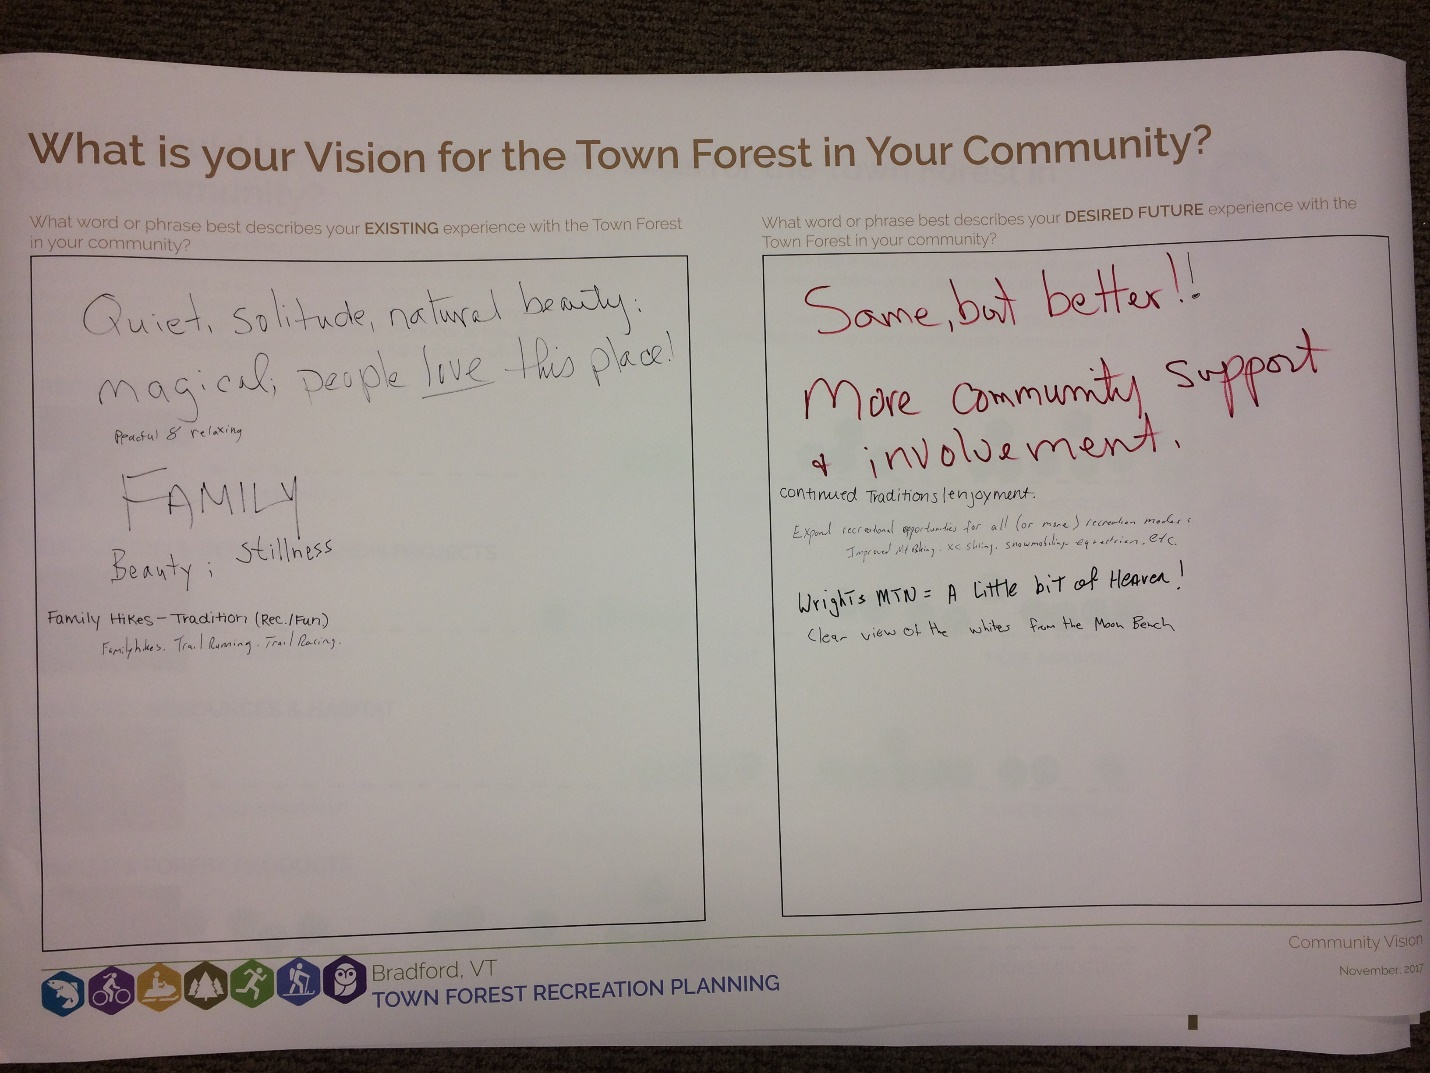 What is your Vision for the Town Forest in Your Community?
What word or phrase best describes your EXISTING experience with the Town Forest
in your community?
Quiet, solitude, natural beauty;
magical; people love this place!
Peacful & relaxing
FAMILY
Beauty; stillness
Family Hikes - Tradition (Rec./Fun)
Family hikes. Trail Running. Trail Racing.
What word or phrase best describes your DESIRED FUTURE experience with the
Town Forest in your community?
Same, but better!!
More community support
& involvement.
continued Traditions/enjoyment.
Expand recreational opportunities for all (or more) recreation modes:
Improved Mt Biking, xc skiing, snowmobiling, equestrian, etc.
Wrights MTN = A Little bit of Heaven!
Clear view of the whites from the Moon Bench
Bradford, VT
TOWN FOREST RECREATION PLANNING
Community Vision
November, 2017